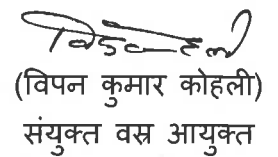 (विपन कुमार कोहली)
संयुक्त वस्र आयुक्त